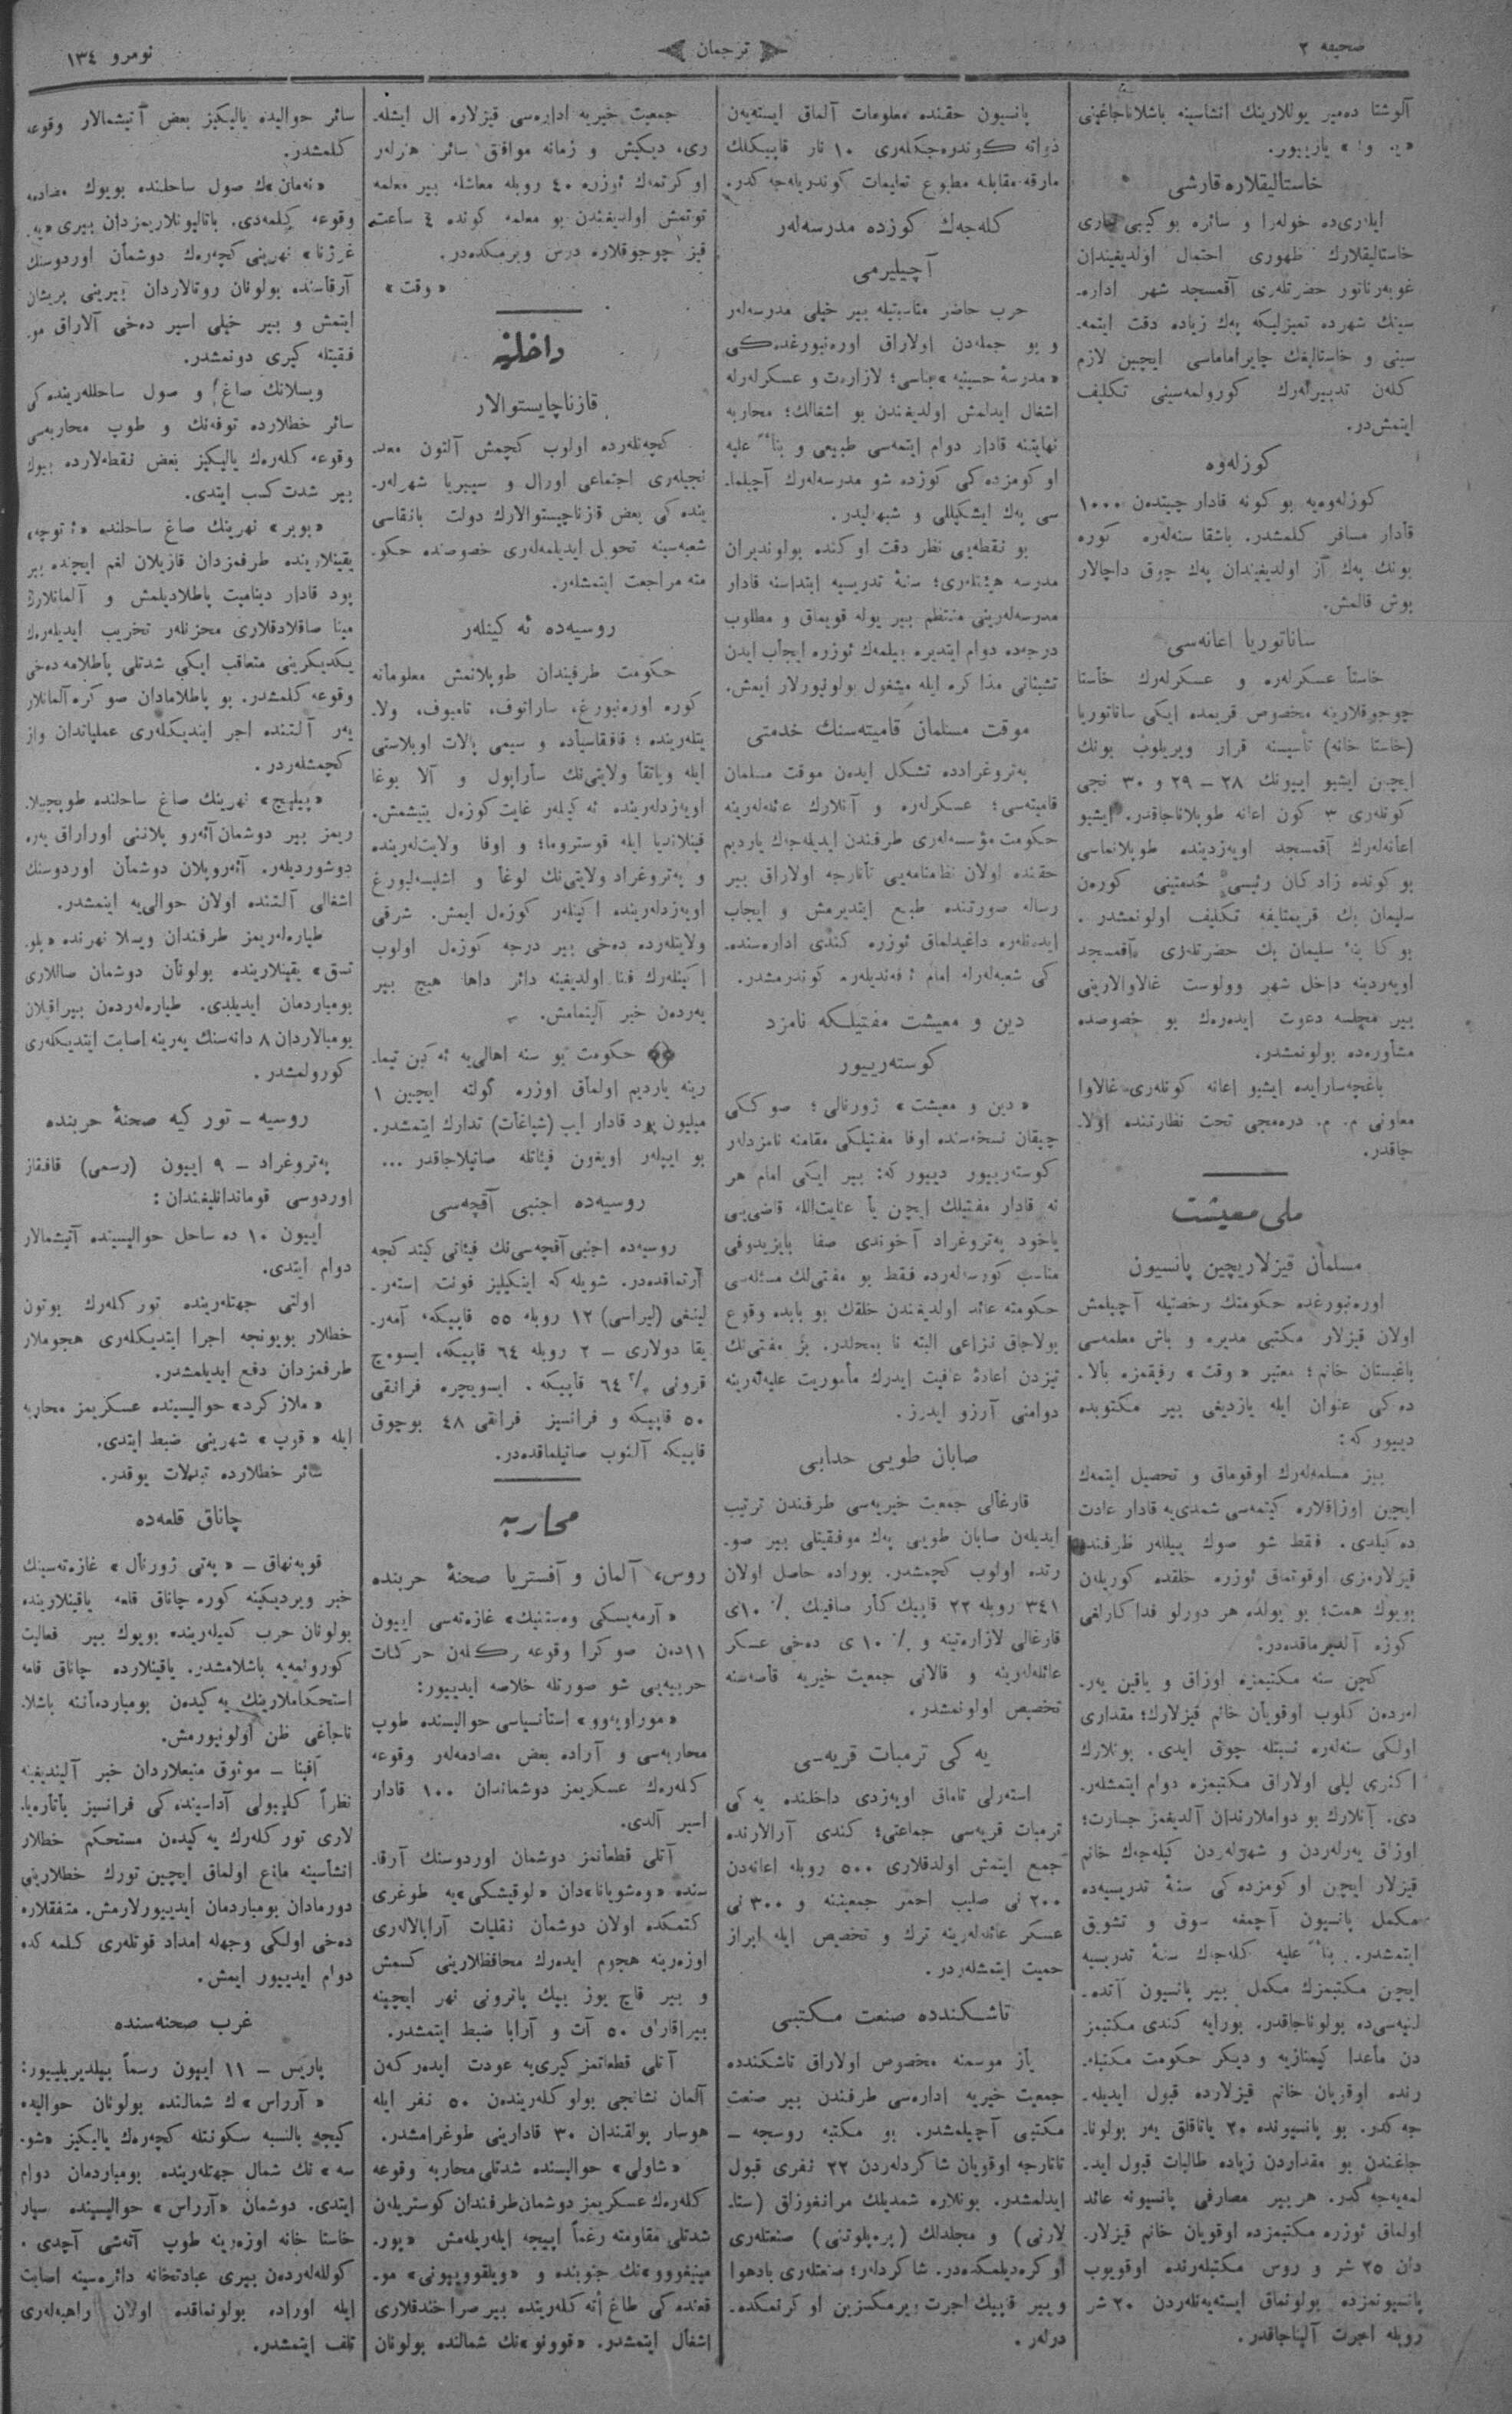 صحیفه ٢
ترجمان
نومرو ١٣٤
آلوشتا ده‌میر یوللارینك انشاسینه باشلاناجاغینی
«یه. وا» یازییور.
خاستالیقلاره قارشی
ایلری‌ده خوله‌را و سائره بو کیبی ساری
خاستالیقلارك ظهوری احتمال اولدیغیندان
غوبه‌رناتور حضرتلری آقمسجد شهر اداره‌ـ
سینك شهرده تمیزلیکه پەك زیاده دقت ایتمه‌ـ
سینی و خاستالیغك چاپراماماسی ایچین لازم
کلەن تدبیرلەرك کورولمه‌سینی تکلیف
ایتمش‌در.
کوزله‌وه
کوزله‌وه‌یه بو کونه قادار چیتدەن ١٠٠٠
قادار مسافر کلمشدر. باشقا سنه‌لەره کوره
بونك پەك آز اولدیغیندان پەك چوق داچالار
بوش قالمش.
ساناتوریا اعانه‌سی
خاستا عسکرلەره و عسکرلەرك خاستا
چوجوقلارینه مخصوص قریمده ایکی ساناتوریا
(خاستا خانه) تأسیسنه قرار ویریلوب بونك
ایچین ایشبو اییونك ٢٨ – ٢٩ و ٣٠ نجی
کونلەری ٣ کون اعانه طوپلاناجاقدر. ایشبو
اعانه‌لەرك آقمسجد اویەزدینده طوپلانماسی
بو کونده زادکان رئیسی خدمتینی کورەن
سلیمان بك قریمتایفه تکلیف اولونمشدر.
بوکا بناءً سلیمان بك حضرتلەری آقمسجد
اویەردینه داخل شهر وولوست غالاوالارینی
بیر مجلسه دعوت ایدەرەك بو خصوصده
مشاوره‌ده بولونمشدر.
باغچه‌سارایده ایشبو اعانه کونلەری غالاوا
معاونی م. م. دره‌مجی تحت نظارتنده اولاـ
جاقدر.
ملی معیشت
مسلمان قیزلاریچین پانسیون
اوره‌نبورغده حکومتك رخصتیله آچیلمش
اولان قیزلار مکتبی مدیره و باش معلمه‌سی
باغبستان خانم؛ معتبر «وقت» رفیقمزه بالاـ
ده‌کی عنوان ایله یازدیغی بیر مکتوبده
دییور که:
بیز مسلمه‌لەرك اوقوماق و تحصیل ایتمەك
ایچین اوزاقلاره کیتمه‌سی شمدی‌یه قادار عادت
ده‌کیلدی. فقط شو صوك ییللەر ظرفنده
قیزلارمزی اوقوتماق ئوزره خلقده کوریلەن
بویوك همت؛ بو یولده هر دورلو فداکارلغی
کوزه آلدیرماقده‌در.
کچن سنه مکتبمزه اوزاق و یاقین یەرـ
لەردەن کلوب اوقویان خانم قیزلارك؛ مقداری
اولکی سنه‌لەره نسبتله چوق ایدی. بونلارك
اکثری لیلی اولاراق مکتبمزه دوام ایتمشلەرـ
دی. آنلارك بو دواملارندان آلدیغمز جسارت؛
اوزاق یەرلەردن و شهرلەردن کیله‌جەك خانم
قیزلار ایچن اوکومزده‌کی سنۀ تدریسیه‌ده
مکمل پانسیون آچمغه سوق و تشویق
ایتمشدر. بناءً علیه کله‌جك سنۀ تدریسیه
ایچن مکتبمزك مکمل بیر پانسیون آتده‌ـ
لنیه‌سی‌ده بولوناجاقدر. بورایه کندی مکتبمز
دن ماعدا کیمنازیه و دیکر حکومت مکتبلەـ
رنده اوقویان خانم قیزلارده قبول ایدیله‌ـ
جه‌کدر. بو پانسیونده ٢٠ یاتاقلق یەر بولوناـ
جاغندن بو مقداردن زیاده طالبات قبول ایدـ
لمه‌یه‌جه‌کدر. هر بیر مصارفی پانسیونه عائد
اولماق ئوزره مکتبمزده اوقویان خانم قیزلارـ
دان ٢٥ شر و روس مکتبلەرنده اوقویوب
پانسیونمزده بولونماق ایسته‌یەنلەردن ٢٠ شر
روبله اجرت آلیناجاقدر.
پانسیون حقنده معلومات آلماق ایسته‌یەن
ذواته کوندره‌جکلەری ١٠ نار قاپیکلك
مارقه مقابله مطبوع تعلیمات کوندریله‌جه‌کدر.
کله‌جەك کوزده مدرسه‌لەر
آچیلیرمی
حرب حاضر مناسبتیله بیر خیلی مدرسه‌لەر
و بو جمله‌دن اولاراق اوره‌نبورغده‌کی
«مدرسۀ حسینیه» بناسی؛ لازارەت و عسکرلەرله
اشغال ایدلمش اولدیغندن بو اشغالك؛ محاربه
نهایتنه قادار دوام ایتمه‌سی طبیعی و بناءً علیه
اوکومزده‌کی کوزده شو مدرسه‌لەرك آچیلماـ
سی پەك ایشکیللی و شبهه‌لیدر.
بو نقطه‌یی نظر دقت اوکنده بولوندیران
مدرسه هیئتلەری؛ سنۀ تدریسیه ابتداسنه قادار
مدرسه‌لەرینی منتظم بیر یوله قویماق و مطلوب
درجه‌ده دوام ایتدیره بیلمەك ئوزره ایجاب ایدن
تشبثاتی مذاکره ایله مشغول بولونیورلار ایمش.
موقت مسلمان قامیته‌سنك خدمتی
پەتروغرادده تشکل ایدەن موقت مسلمان
قامیته‌سی؛ عسکرلەره و آنلارك عائله‌لەرینه
حکومت مؤسسه‌لەری طرفندن ایدیله‌جك یاردیم
حقنده اولان نظامنامه‌یی تاتارجه اولاراق بیر
رساله صورتنده طبع ایتدیرمش و ایجاب
ایدەنلەره داغیدلماق ئوزره کندی اداره‌سنده‌ـ
کی شعبه‌لەرله امام ئفندیلەره کوندرمشدر.
دین و معیشت مفتیلکه نامزد
کوسته‌رییور
«دین و معیشت» ژورنالی؛ صوککی
چیقان نسخه‌سنده اوفا مفتیلکی مقامنه نامزدلەر
کوسته‌رییور دییور که: بیر ایکی امام هر
نه قادار مفتیلك ایچن یا عنایت‌الله قاضی‌یی
یاخود پەتروغراد آخوندی صفا بایزیدوفی
مناسب کورسه‌لەرده فقط بو مفتی‌لك مسئله‌سی
حکومته عائد اولدیغندن خلقك بو بابده وقوع
بولاجاق نزاعی البته نا بمحلدر. بز مفتی‌نك
تیزدن اعادۀ عافیت ایدرك مأموریت علیه‌لەرینه
دوامنی آرزو ایدرز.
صابان طویی حدابی
قارغالی جمعیت خیریه‌سی طرفندن ترتیب
ایدیلەن صابان طویی پەك موفقیتلی بیر صوـ
رتده اولوب کچمشدر. بوراده حاصل اولان
٣٤١ روبله ٢٢ قاپیك کار صافینك ٪ ١٠ی
قارغالی لازارەتینه و ٪ ١٠ ی دەخی عسکر
عائله‌لەرینه و قالانی جمعیت خیریه قاصه‌سنه
تخصیص اولونمشدر.
یه‌کی ترمبات قریه‌سی
استەرلی تاماق اویەزدی داخلنده یه‌کی
ترمبات قریه‌سی جماعتی؛ کندی آرالارنده
جمع ایتمش اولدقلاری ٥٠٠ روبله اعانه‌دن
٢٠٠ نی صلیب احمر جمعیتنه و ٣٠٠ نی
عسکر عائله‌لەرینه ترك و تخصیص ایله ابراز
حمیت ایتمشلەردر.
تاشکندده صنعت مکتبی
یاز موسمنه مخصوص اولاراق تاشکندده
جمعیت خیریه اداره‌سی طرفندن بیر صنعت
مکتبی آچیلمشدر. بو مکتبه روسجه –
تاتارجه اوقویان شاکردلەردن ٢٢ نفری قبول
ایدلمشدر. بونلاره شمدیلك مرانغوزلق (ستاـ
لارنی) و مجلدلك (پره‌پلوتنی) صنعتلەری
اوکره‌دیلمکده‌در. شاکردلەر؛ صنعتلەری بادهوا
و بیر قپیك اجرت ویرمکسزین اوکرنمکده‌ـ
درلەر.
جمعیت خیریه اداره‌سی قیزلاره ال ایشله‌ـ
ری، دیکیش و زمانه موافق سائر هنرلەر
اوکرتمەك ئوزره ٤٠ روبله معاشله بیر معلمه
توتمش اولدیغندن بو معلمه کونده ٤ ساعت
قیز چوجوقلاره درس ویرمکده‌در.
«وقت»
داخلیه
قازناچایستوالار
کچەنلەرده اولوب کچمش آلتون معدـ
نجیلەری اجتماعی اورال و سیبریا شهرلەرـ
ینده‌کی بعض قازناچیستوالارك دولت بانقاسی
شعبه‌سینه تحویل ایدیلمه‌لەری خصوصنده حکوـ
مته مراجعت ایتمشلەر.
روسیه‌ده ئه‌کینلەر
حکومت طرفیندان طوپلانمش معلوماته
کوره اوره‌نبورغ، ساراتوف، تامبوف، ولاـ
یتلەرینده؛ قافقاسیاده و سیمی پالات اوبلاستی
ایله ویاتقا ولایتی‌نك سأراپول و آلا بوغا
اویەزدلەرینده ئه‌کیلەر غایت کوزەل یتیشمش.
فینلاندیا ایله قوستروما؛ و اوفا ولایت‌لەرینده
و پەتروغراد ولایتی‌نك لوغا و اشلیسەلبورغ
اویەزدلەرینده اکینلەر کوزەل ایمش. شرقی
ولایتلەرده دەخی بیر درجه کوزەل اولوب
اکینلەرك فنا اولدیغینه دائر داها هیچ بیر
یەردەن خبر آلینمامش.
حکومت بو سنه اهالی‌یه ئه‌کین تیماـ
رینه یاردیم اولماق اوزره کولته ایچین ١
میلیون پود قادار ایپ (شپاغات) تدارك ایتمشدر.
بو ایپلەر اویغون فیئاتله صاتیلاجاقدر ...
روسیه‌ده اجنبی آقچه‌سی
روسیه‌ده اجنبی آقچه‌سی‌نك فیئاتی کیتدکجه
آرتماقده‌در. شویله‌که اینکیلیز فونت استەرـ
لینغی (لیراسی) ١٢ روبله ٥٥ قاپیکه، آمەرـ
یقا دولاری – ٢ روبله ٦٤ قاپیکه، ایسوەچ
قرونی ٦٤ قاپیکه. ایسویچره فرانقی
٥٠ قاپیکه و فرانسیز فرانقی ٤٨ بوچوق
قاپیکه آلنوب صاتیلماقده‌در.
محاربه
روس، آلمان و آفستریا صحنۀ حربنده
«آرمەیسکی وەستنیك» غازه‌ته‌سی اییون
١١دەن صوکرا وقوعه کلەن حرکات
حربیه‌یی شو صورتله خلاصه ایدییور:
«موراویەوو» استانسیاسی حوالیسنده طوپ
محاربه‌سی و آراده بعض مصادمه‌لەر وقوعه
کلەرەك عسکریمز دوشماندان ١٠٠ قادار
اسیر آلدی.
آتلی قطعأتمز دوشمان اوردوسنك آرقاـ
سنده «وەشویانا»دان «لوقیشکی»یه طوغری
کتمکده اولان دوشمان نقلیات آرابالاری
اوزەرینه هجوم ایدەرك محافظلارینی کسمش
و بیر قاچ یوز بیك پاترونی نهر ایچینه
بیراقاراق ٥٠ آت و آرابا ضبط ایتمشدر.
آتلی قطعاتمز کیری‌یه عودت ایدەرکەن
آلمان نشانجی بولوکلەریندەن ٥٠ نفر ایله
هوسار پولقندان ٣٠ قادارینی طوغرامشدر.
«شاولی» حوالیسنده شدتلی محاربه وقوعه
کلەرەك عسکریمز دوشمان طرفندان کوستریلەن
شدتلی مقاومته رغماً ایپیجه ایلەریله‌مش «پورـ
مینیغوو»نك جنوبنده و «ویلقوویپونی» موـ
قعنده‌کی طاغ أتەکلەرینده بیر صرا خندقلاری
اشغال ایتمشدر. «قوونو»نك شمالنده بولونان
سائر حوالیده یالیکیز بعض آتیشمالار وقوعه
کلمشدر.
«نەمان»ك صول ساحلنده بویوك مصادمه
وقوعه کیلمەدی. باتالیونلاریمزدان بیری «یه‌ـ
غرژنا» نهرینی کچەرەك دوشمان اوردوسنك
آرقاسنده بولونان روتالاردان بیرینی پریشان
ایتمش و بیر خیلی اسیر دەخی آلاراق موـ
فقیتله کیری دونمشدر.
ویسلانك صاغ و صول ساحللەرینده‌کی
سائر خطلارده توفه‌نك و طوپ محاربه‌سی
وقوعه کلەرەك یالیکیز بعض نقطه‌لارده بیوك
بیر شدت کسب ایتدی.
«بوبر» نهرینك صاغ ساحلنده
یقینلارینده طرفمزدان قازیلان لغم ایچنده بیر
پود قادار دینامیت پاطلادیلمش و آلمانلارك
مینا صاقلادقلاری محزنلەر تخریب ایدیلەرەك
یکدیکرینی متعاقب ایکی شدتلی پاطلامه دەخی
وقوعه کلمشدر. بو پاطلامادان صوکره آلمانلار
یەر آلتنده اجر ایتدیکلەری عملیاتدان واز
کچمشلەردر.
«بیلیچ» نهرینك صاغ ساحلنده طوپجیلاـ
ریمز بیر دوشمان آئەرو پلاننی اوراراق یەره
دوشوردیلەر. آئەروپلان دوشمان اوردوسنك
اشغالی آلتنده اولان حوالی‌یه اینمشدر.
طیاره‌لەریمز طرفندان ویسلا نهرنده «پلوـ
تسق» یقینلارینده بولونان دوشمان صاللاری
بومباردمان ایدیلدی. طیاره‌لەردەن بیراقیلان
بومبالاردان ٨ دانه‌سنك یەرینه اصابت ایتدیکلەری
کورولمشدر.
روسیه – تورکیه صحنۀ حربنده
پەتروغراد – ٩ اییون (رسمی) قافقاز
اوردوسی قوماندانلیغندان:
اییون ١٠ ده ساحل حوالیسینده آتیشمالار
دوام ایتدی.
اولتی جهتلەرینده تورکلەرك بوتون
خطلار بویونجه اجرا ایتدیکلەری هجوملار
طرفمزدان دفع ایدیلمشدر.
«ملازکرد» حوالیسینده عسکریمز محاربه
ایله «قوپ» شهرینی ضبط ایتدی.
سائر خطلارده تبدلات یوقدر.
چاناق قلعه‌ده
قوپەنهاق – «یەنی ژورنال» غازه‌ته‌سینك
خبر ویردیکینه کوره چاناق قلعه یاقینلارینده
بولونان حرب کمیلەرینده بویوك بیر فعالیت
کورونمیه باشلامشدر. یاقینلارده چاناق قلعه
استحکاملارینك یه‌کیدەن بومباردمانته باشلاـ
ناجاغی ظن اولونیورمش.
آفینا – موثوق منبعلاردان خبر آلیندیغینه
نظراً کلیبولی آداسینده‌کی فرانسیز باتاره‌یاـ
لاری تورکلەرك یه‌کیدەن مستحکم خطلار
انشأسینه مانع اولماق ایچین تورك خطلارینی
دورمادان بومباردمان ایدییورلارمش. متفقلاره
دەخی اولکی وجهله امداد قوتلەری کلمه‌کده
دوام ایدییور ایمش.
غرب صحنه‌سنده
پاریس – ١١ اییون رسماً بیلدیریلییور:
«آرراس»ك شمالنده بولونان حوالیده
کیجه بالنسبه سکونتله کچەرەك یالیکیز «شوـ
سه»نك شمال جهتلەرینده بومباردمان دوام
ایتدی. دوشمان «آرراس» حوالیسینده سیار
خاستا خانه اوزەرینه طوپ آته‌شی آچدی.
کولله‌لەردەن بیری عبادتخانه دائره‌سینه اصابت
ایله اوراده بولونماقده اولان راهبه‌لەری
تلف ایتمشدر.